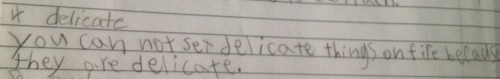 * delicate
you can not set delicate things on fire because
they are delicate.